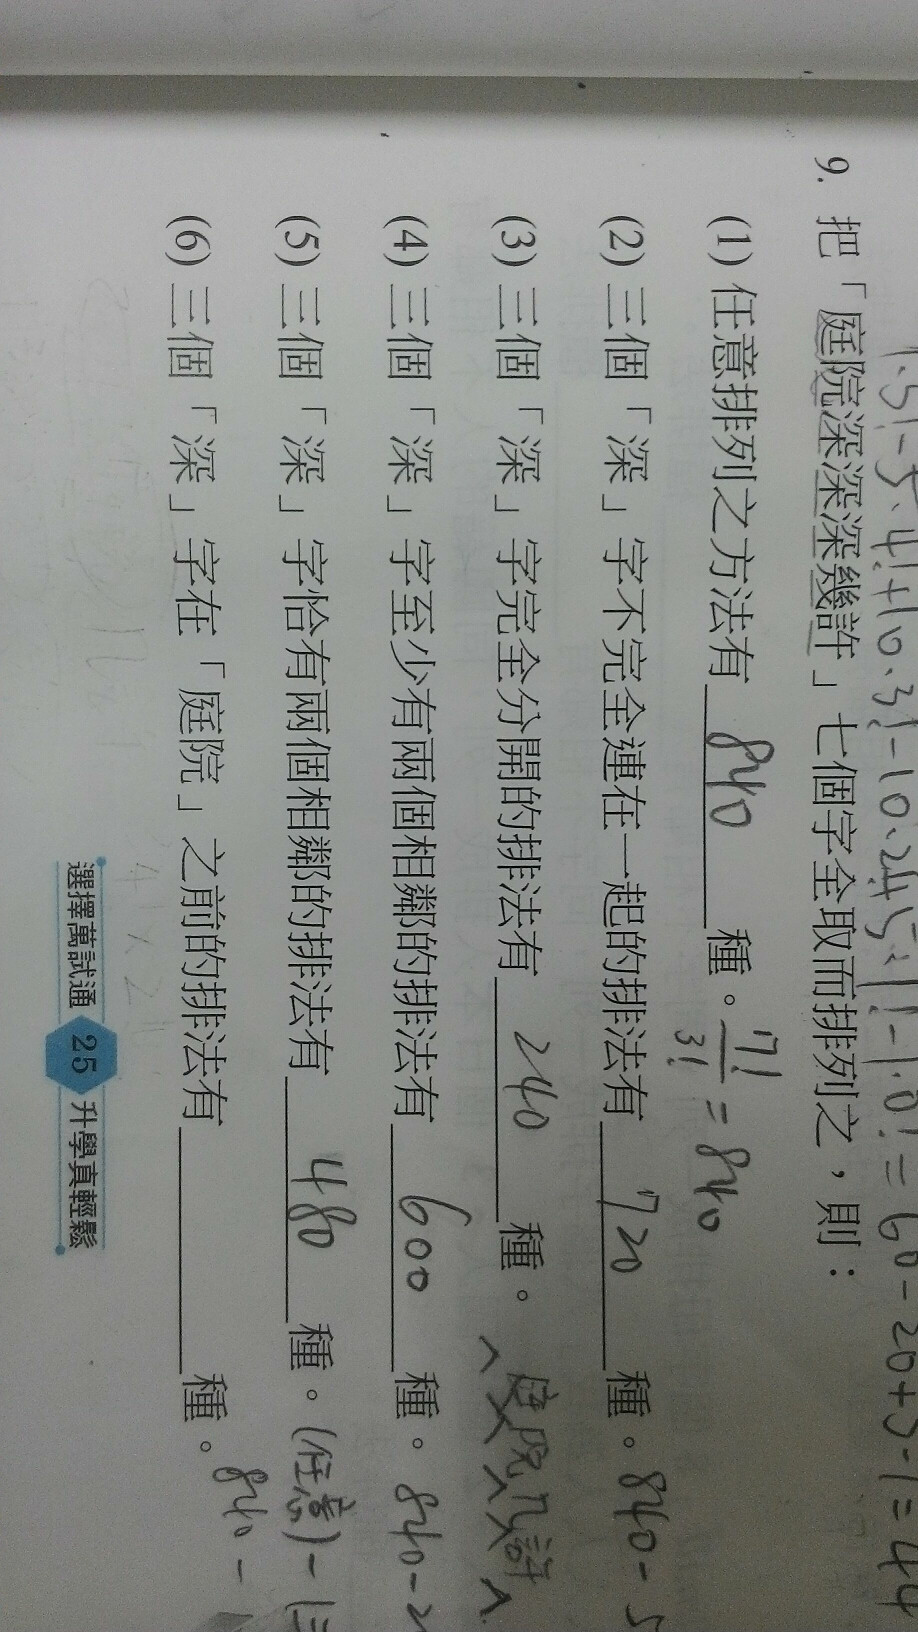 1·5!-5·4!+10·3!-10·2!+5·1!-1·0! = 60-20+5-1=44
9. 把「庭院深深深幾許」七個字全取而排列之，則：
(1) 任意排列之方法有 840 種。 7!/3! = 840
(2) 三個「深」字不完全連在一起的排法有 720 種。 840-5
(3) 三個「深」字完全分開的排法有 240 種。 庭院几許
(4) 三個「深」字至少有兩個相鄰的排法有 600 種。 840-2
(5) 三個「深」字恰有兩個相鄰的排法有 480 種。 (任意)-
840-
(6) 三個「深」字在「庭院」之前的排法有 種。
選擇萬試通 25 升學真輕鬆